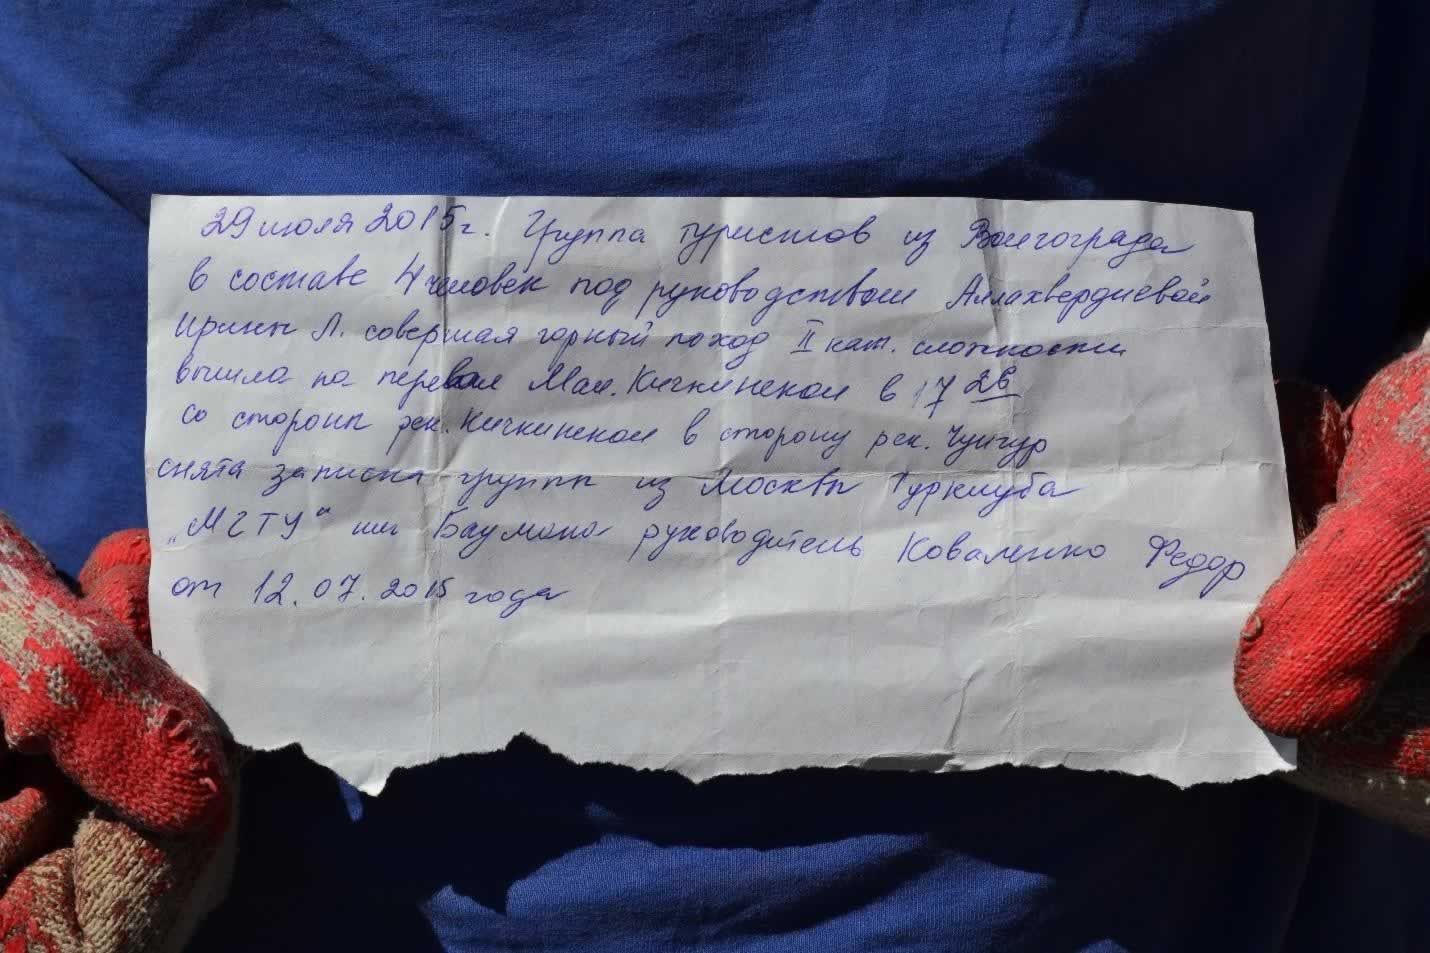 29 июля 2015г. Группа туристов из Волгограда
в составе 4 человек под руководством Аллахвердиевой
Ирины Л. совершая горный поход II кат. сложности
вышла на перевал Мал. Кичкинекол в 17 26
со стороны рек. Кичкинекол в сторону рек. Чунгур
снята записка группы из Москвы Турклуба
„МГТУ“ им Баумана руководитель Коваленко Федор
от 12.07.2015 года